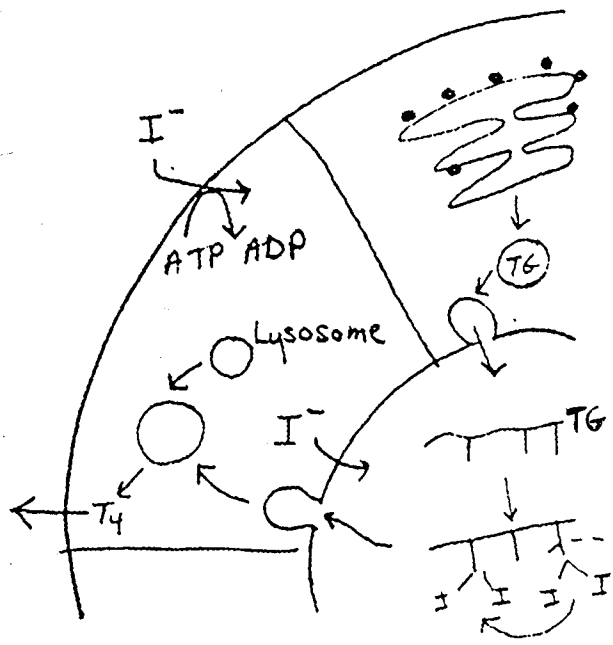 I⁻
ATP ADP
TG
Lysosome
I⁻
TG
T₄
I I I I